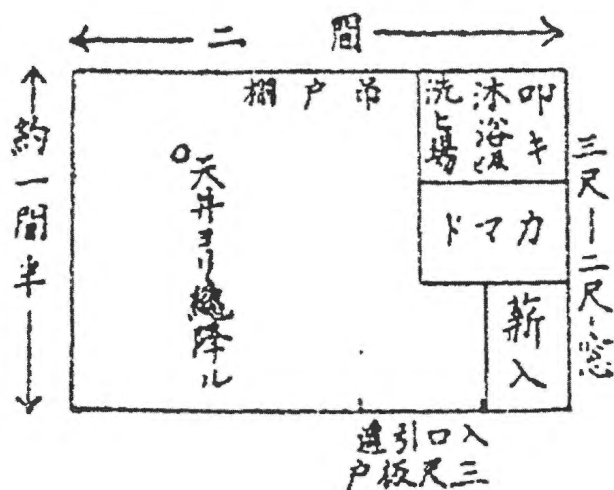 二間
約一間半
吊戸棚
叩キ
沐浴及ヒ
洗ヒ場
カマド
薪入
三尺―二尺―窓
天井ヨリ繩降ル
入口引違
三尺板戸